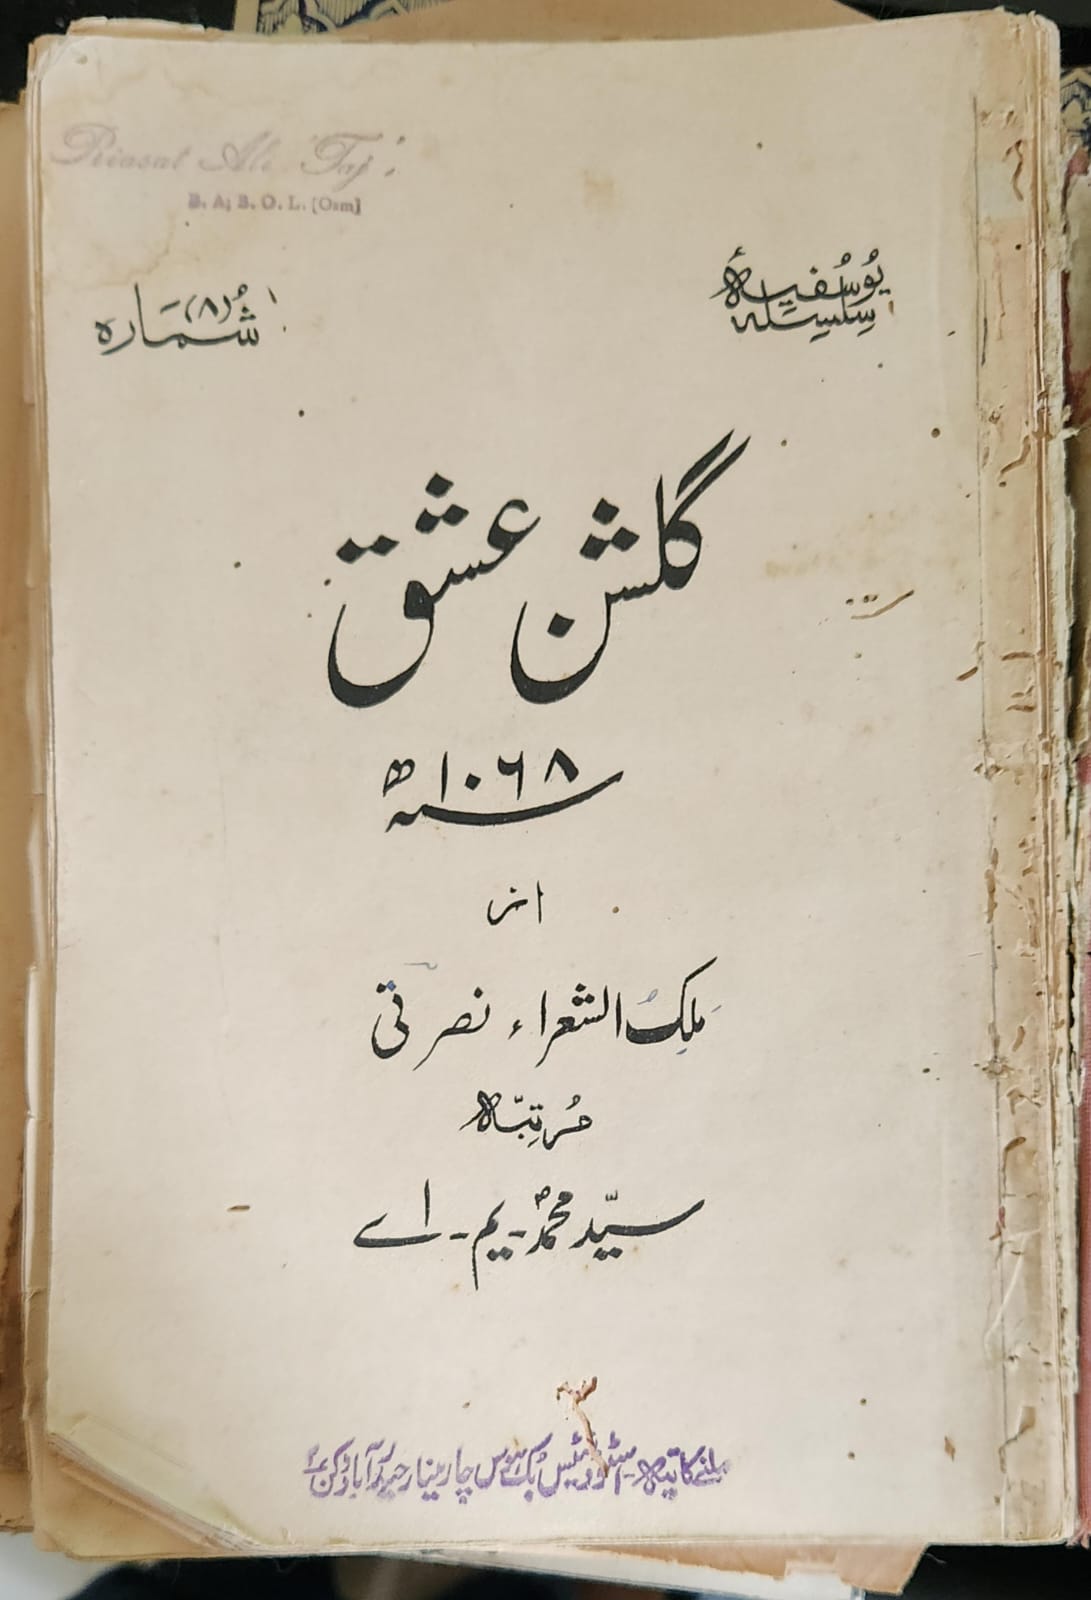 Riasat Ali 'Taj',
B. A; B. O. L. [Osm]
سلسلہ یُوسُفیہ
شُمارہ (۸)
گلشنِ عشق
سنہ ۱۰۶۸ھ
از
ملِکُ الشعراء نصرتی
مُرتِّبہ
سیّد محمدؐ - یم - اے
ملنے کا پتہ - اسٹوڈنٹس بُک ہوس چارمینار حیدرآباد دکن